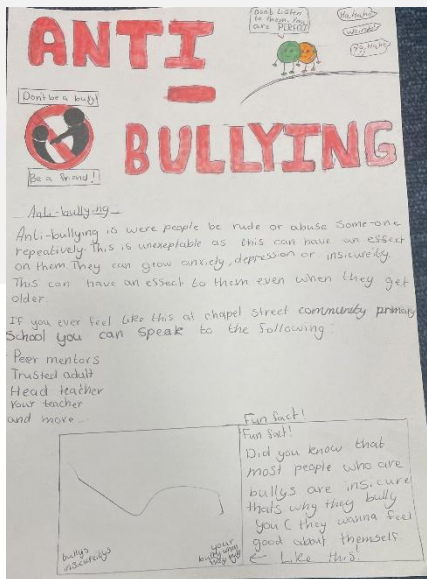 ANTI
-
BULLYING
Don't listen
to them, You
are PERFECT
Weirdo
Don't be a bully!
Be a friend!
Anti-bullying
Anti-bullying is were people be rude or abuse Some-one
repeatively. This is unexeptable as this can have an effect
on them They can grow anxiety, depression or insicureity.
This can have an essect to them even when they get
older.
If you ever feel like this at chapel street community primary
School you can speak to the following:
Peer mentors
Trusted adult
Head teacher
Your teacher
and more...
Fun fact!
Fun fact!
Did you know that
most people who are
bullys are insicure!
thats why they bully
you (they wanna feel
good about themself
← Like this!
bullys
insicureitys
your
bully when
they